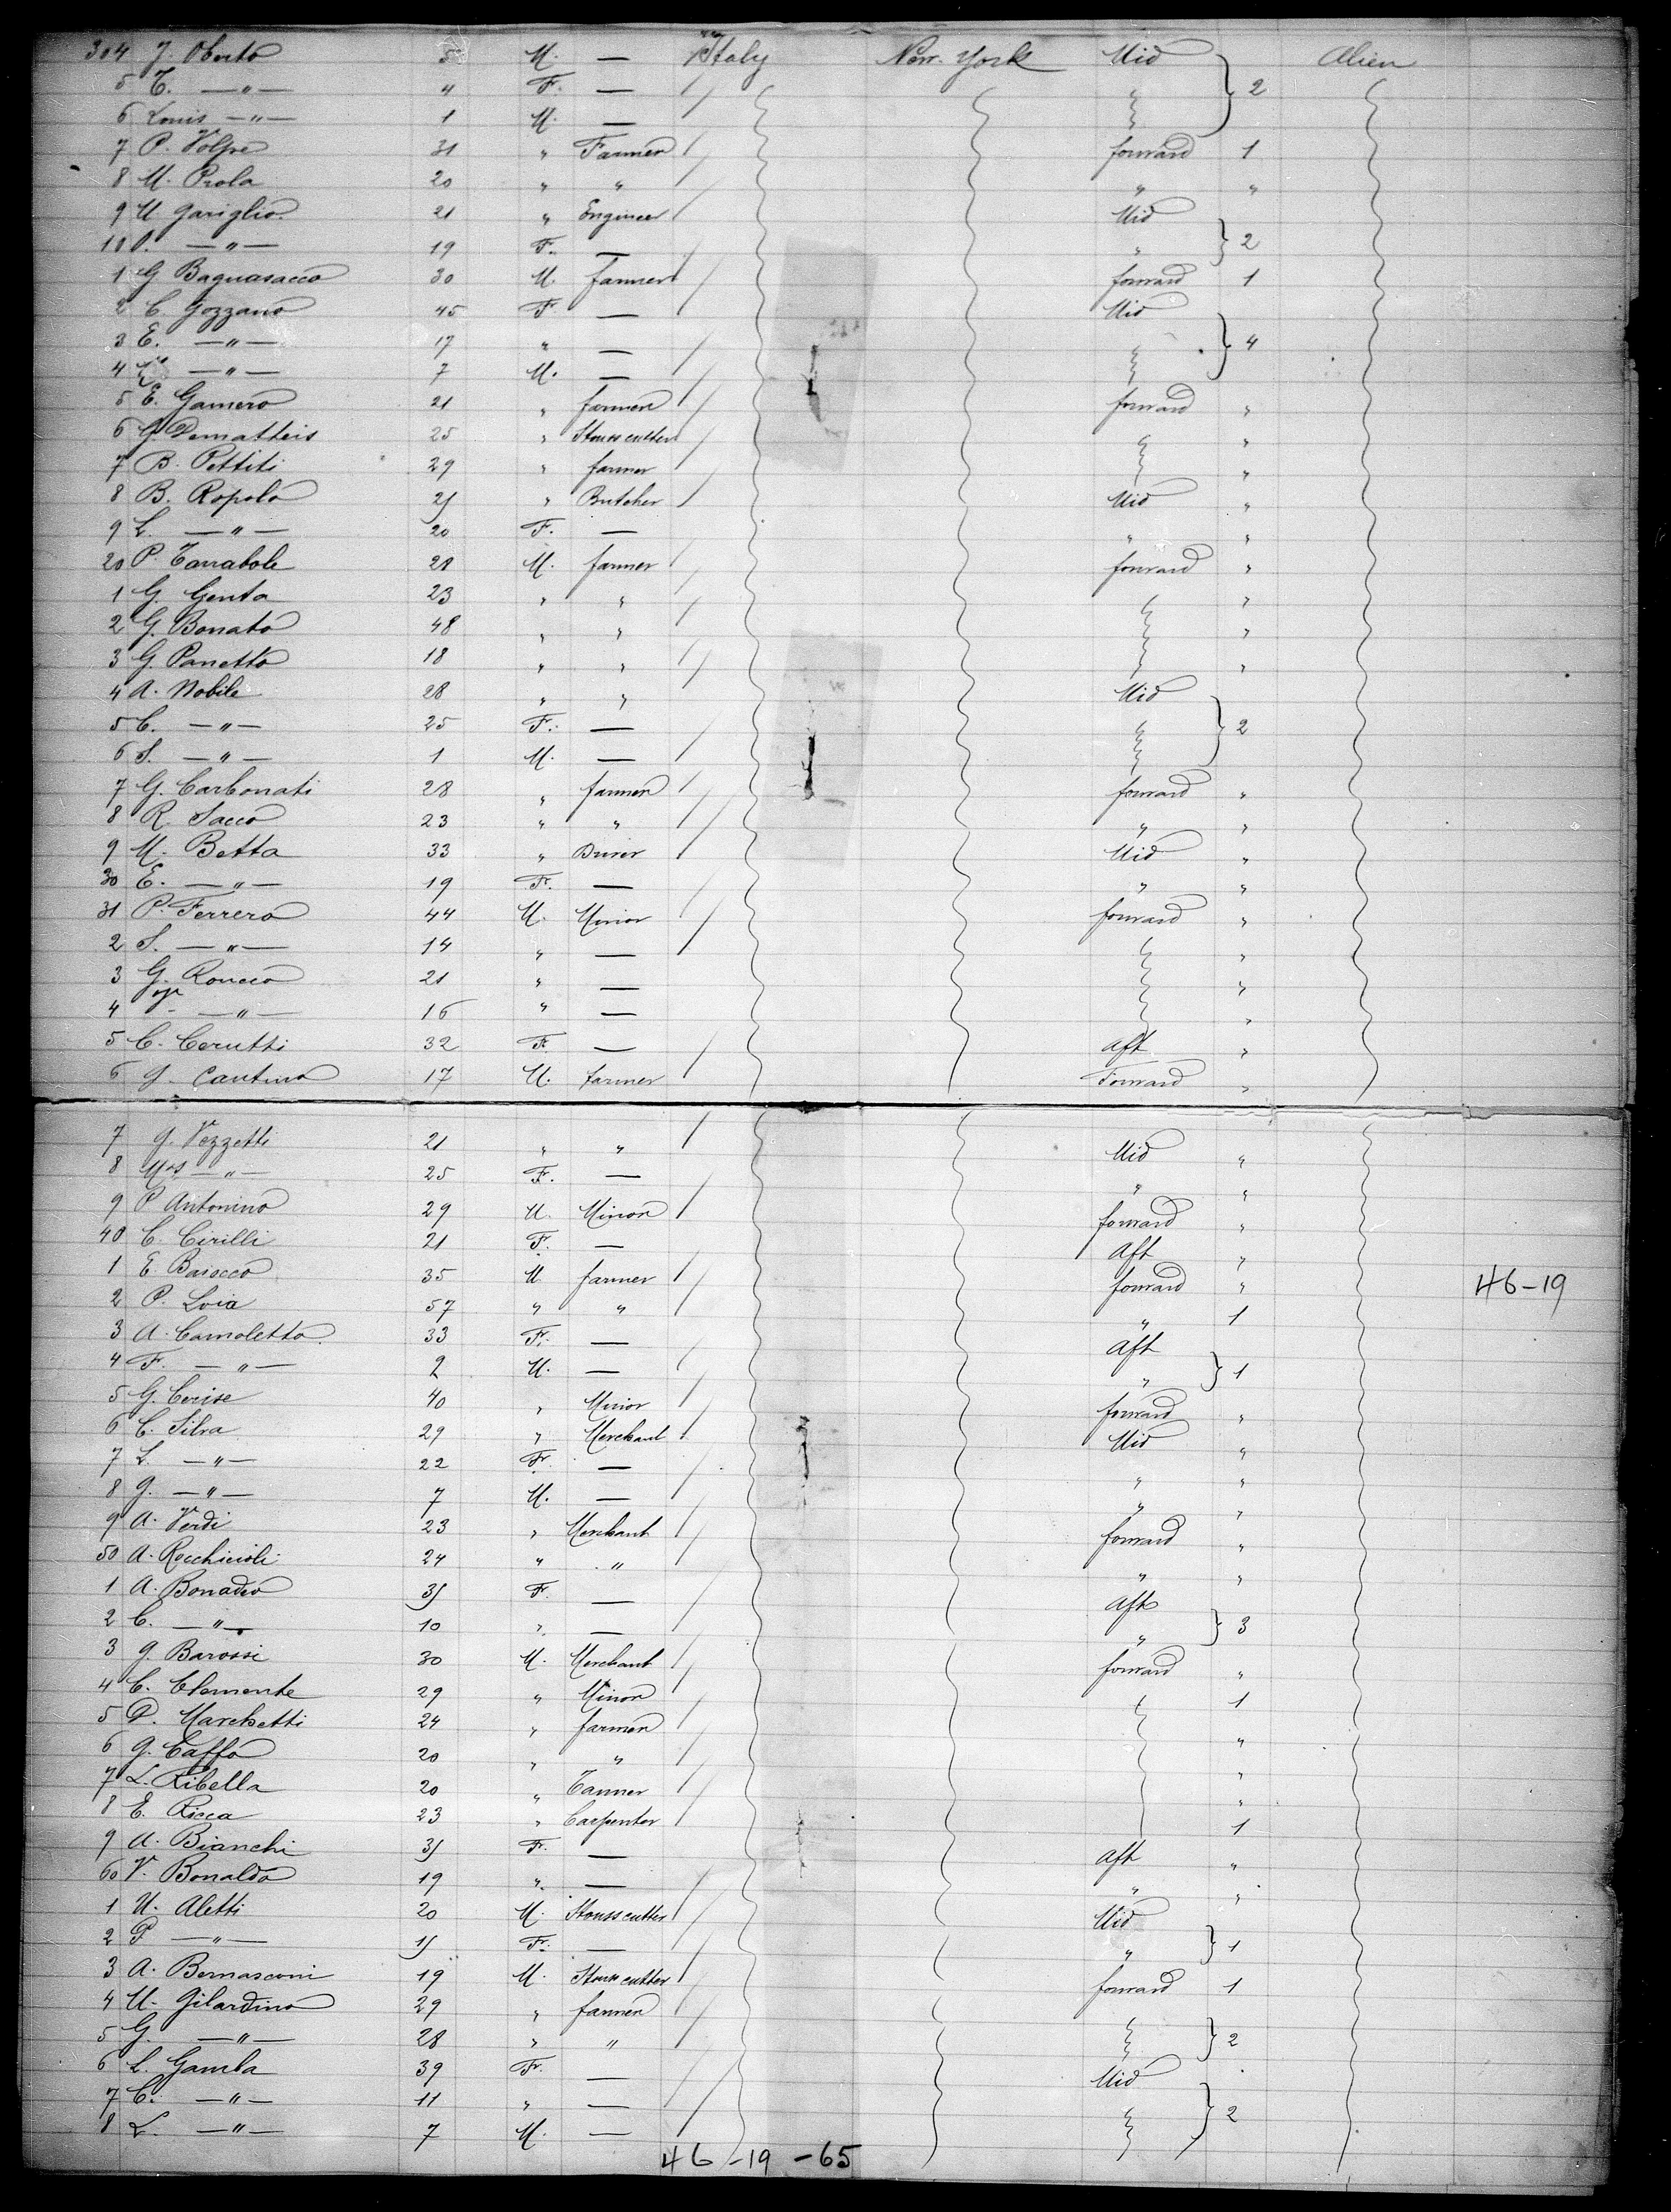 304 J. Oberto 5 M. — Italy New-York Mid 2 Alien
5 T. —"— " F. —
6 Louis —"— 1 M. —
7 P. Volpe 31 " Farmer forward 1
8 M. Prola 20 " " " "
9 M Gariglio 21 " Engineer Mid
10 —"— 19 F. — " 2
1 G Bagnasacco 30 M. farmer forward 1
2 C. Gozzano 45 F —  Mid
3 E. —"— 17 " — 4
4 —"— 7 M. —
5 E. Gamero 21 " farmer forward "
6 G. Dematteis 25 " Stonscutter "
7 B. Pettiti 29 " farmer "
8 B. Ropolo 25 " Butcher Mid "
9 L. —"— 20 F. — " "
20 P. Tarrabole 28 M. farmer forward "
1 G. Genta 23 " " "
2 G. Bonato 48 " " "
3 G. Panetto 18 " " "
4 A. Nobile 28 " " Mid
5 C. —"— 25 F. — 2
6 S. —"— 1 M. —
7 G. Carbonati 28 " farmer forward "
8 R. Sacco 23 " " " "
9 M. Betta 33 " Driver Mid "
30 E. —"— 19 F. — " "
31 P. Ferrero 44 M. Minor forward "
2 S. —"— 14 " — "
3 G. Roncco 21 " — "
4 —"— 16 " — "
5 C. Cerutti 32 F. — aft "
6 G. Cantino 17 M. farmer Forward "
7 G. Vezzetti 21 " " Mid "
8 Mrs —"— 25 F. — " "
9 P Antonino 29 M. Minor forward "
40 C. Cirilli 21 F. — Aft "
1 E. Barocco 35 M farmer forward " 46-19
2 P. Loia 57 " " " 1
3 A. Camoletto 33 F. — aft
4 F. —"— 2 M. — " 1
5 G. Cerise 40 " Minor forward "
6 C. Silva 29 " Merchant Mid "
7 L. —"— 22 F. — " "
8 G. —"— 7 M. — " "
9 A. Verdi 23 " Merchant forward "
50 A. Rocchicioli 24 " " " "
1 A. Bonadio 35 F. — aft
2 C. —"— 10 " — " 3
3 G. Barossi 30 M. Merchant forward "
4 C. Clemente 29 " Minor 1
5 P. Marchetti 24 " farmer "
6 G. Caffo 20 " " "
7 L. Ribella 20 " Tanner "
8 E. Ricca 23 " Carpenter 1
9 A. Bianchi 35 F. — aft "
60 V. Bonaldo 19 " — " "
1 M. Aletti 20 M. Stonscutter Mid
2 P —"— 15 F. — " 1
3 A. Bernasconi 19 M. Stonscutter forward 1
4 M. Gilardino 29 " farmer
5 G. —"— 28 " " 2
6 L. Gamba 39 F. — Mid
7 C. —"— 11 " — 2
8 L. —"— 7 M. —
46-19-65